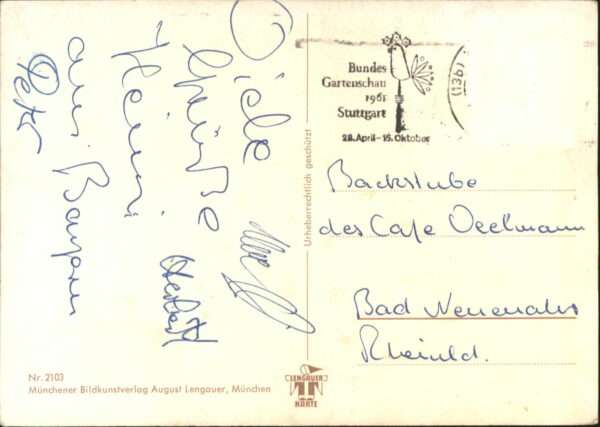 Viele
Grüße
Heini
aus Bayern
Peter
Herbert
Bundes
Gartenschau
1961
Stuttgart
28. April - 15. Oktober
(13b)
Urheberrechtlich geschützt
Backstube
des Cafe Oellmann
Bad Neuenahr
Rheinld.
Nr. 2103
Münchener Bildkunstverlag August Lengauer, München
LENGAUER
KARTE